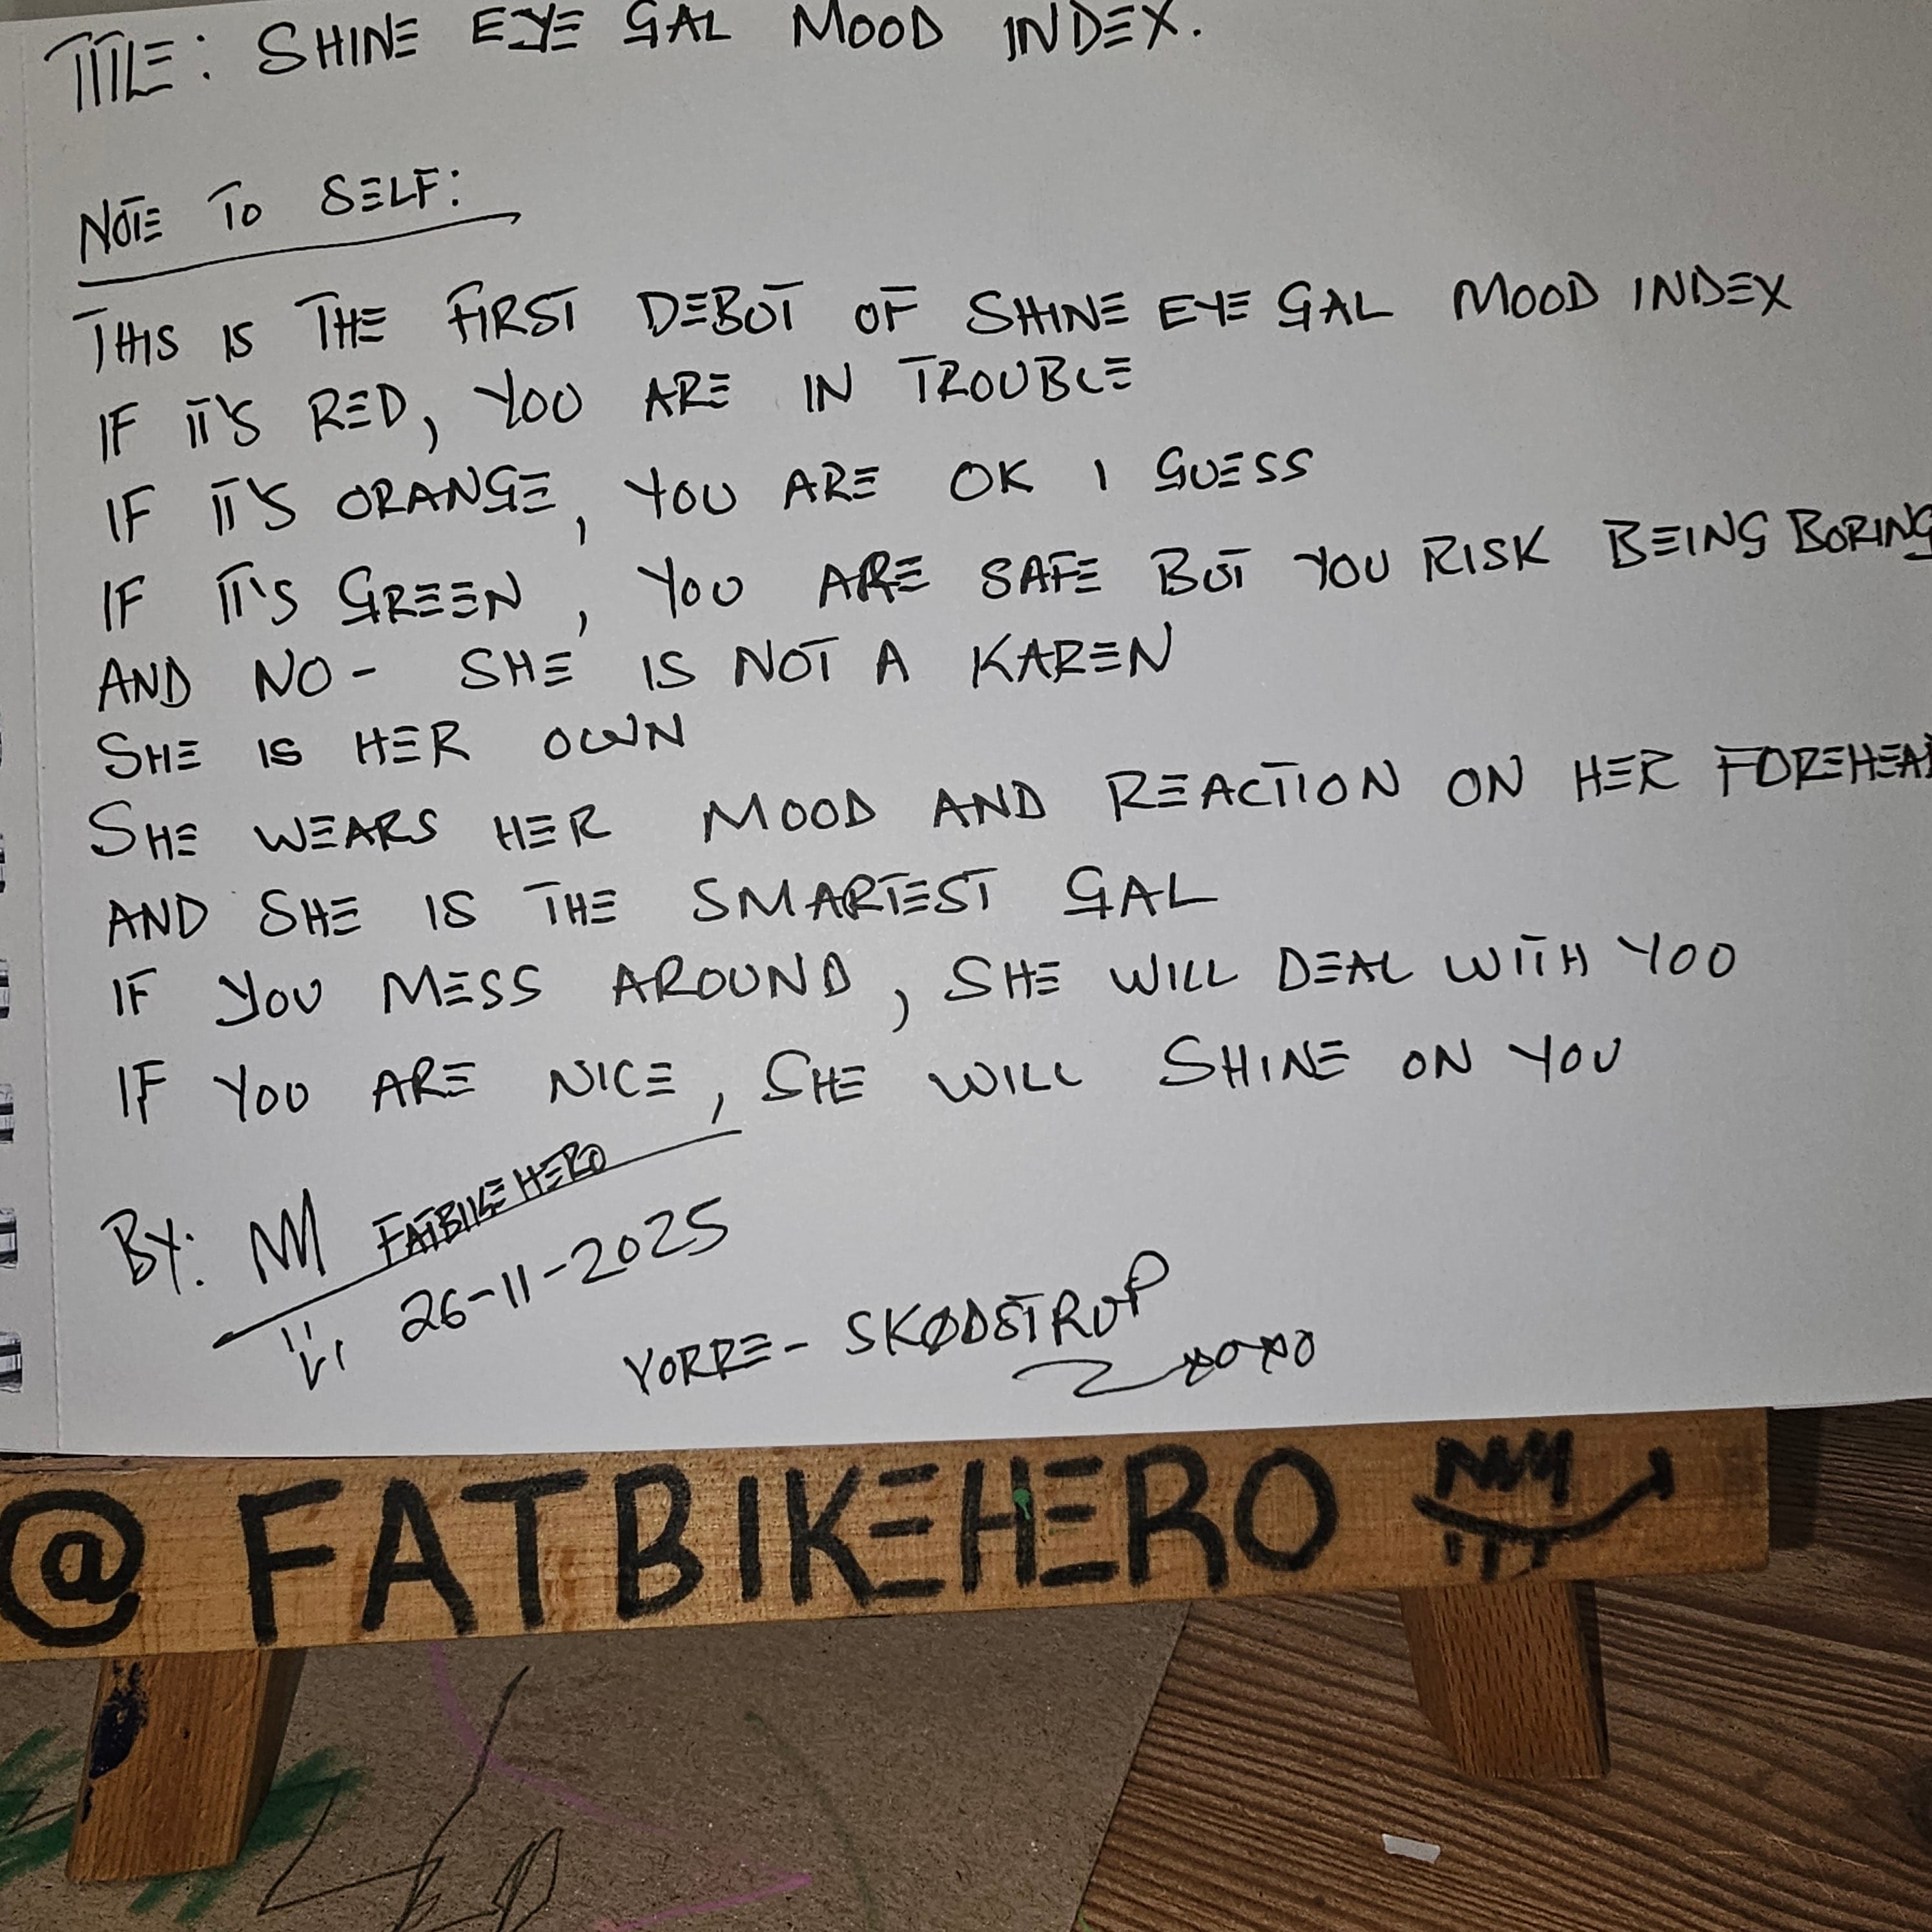 TITLE: SHINE EYE GAL MOOD INDEX.
NOTE TO SELF:
THIS IS THE FIRST DEBUT OF SHINE EYE GAL MOOD INDEX
IF IT'S RED, YOU ARE IN TROUBLE
IF IT'S ORANGE, YOU ARE OK I GUESS
IF IT'S GREEN, YOU ARE SAFE BUT YOU RISK BEING BORING
AND NO- SHE IS NOT A KAREN
SHE IS HER OWN
SHE WEARS HER MOOD AND REACTION ON HER FOREHEAD
AND SHE IS THE SMARTEST GAL
IF YOU MESS AROUND, SHE WILL DEAL WITH YOU
IF YOU ARE NICE, SHE WILL SHINE ON YOU
BY: FATBIKEHERO
26-11-2025
VORRE- SKØDSTRUP
XOXO
@FATBIKEHERO